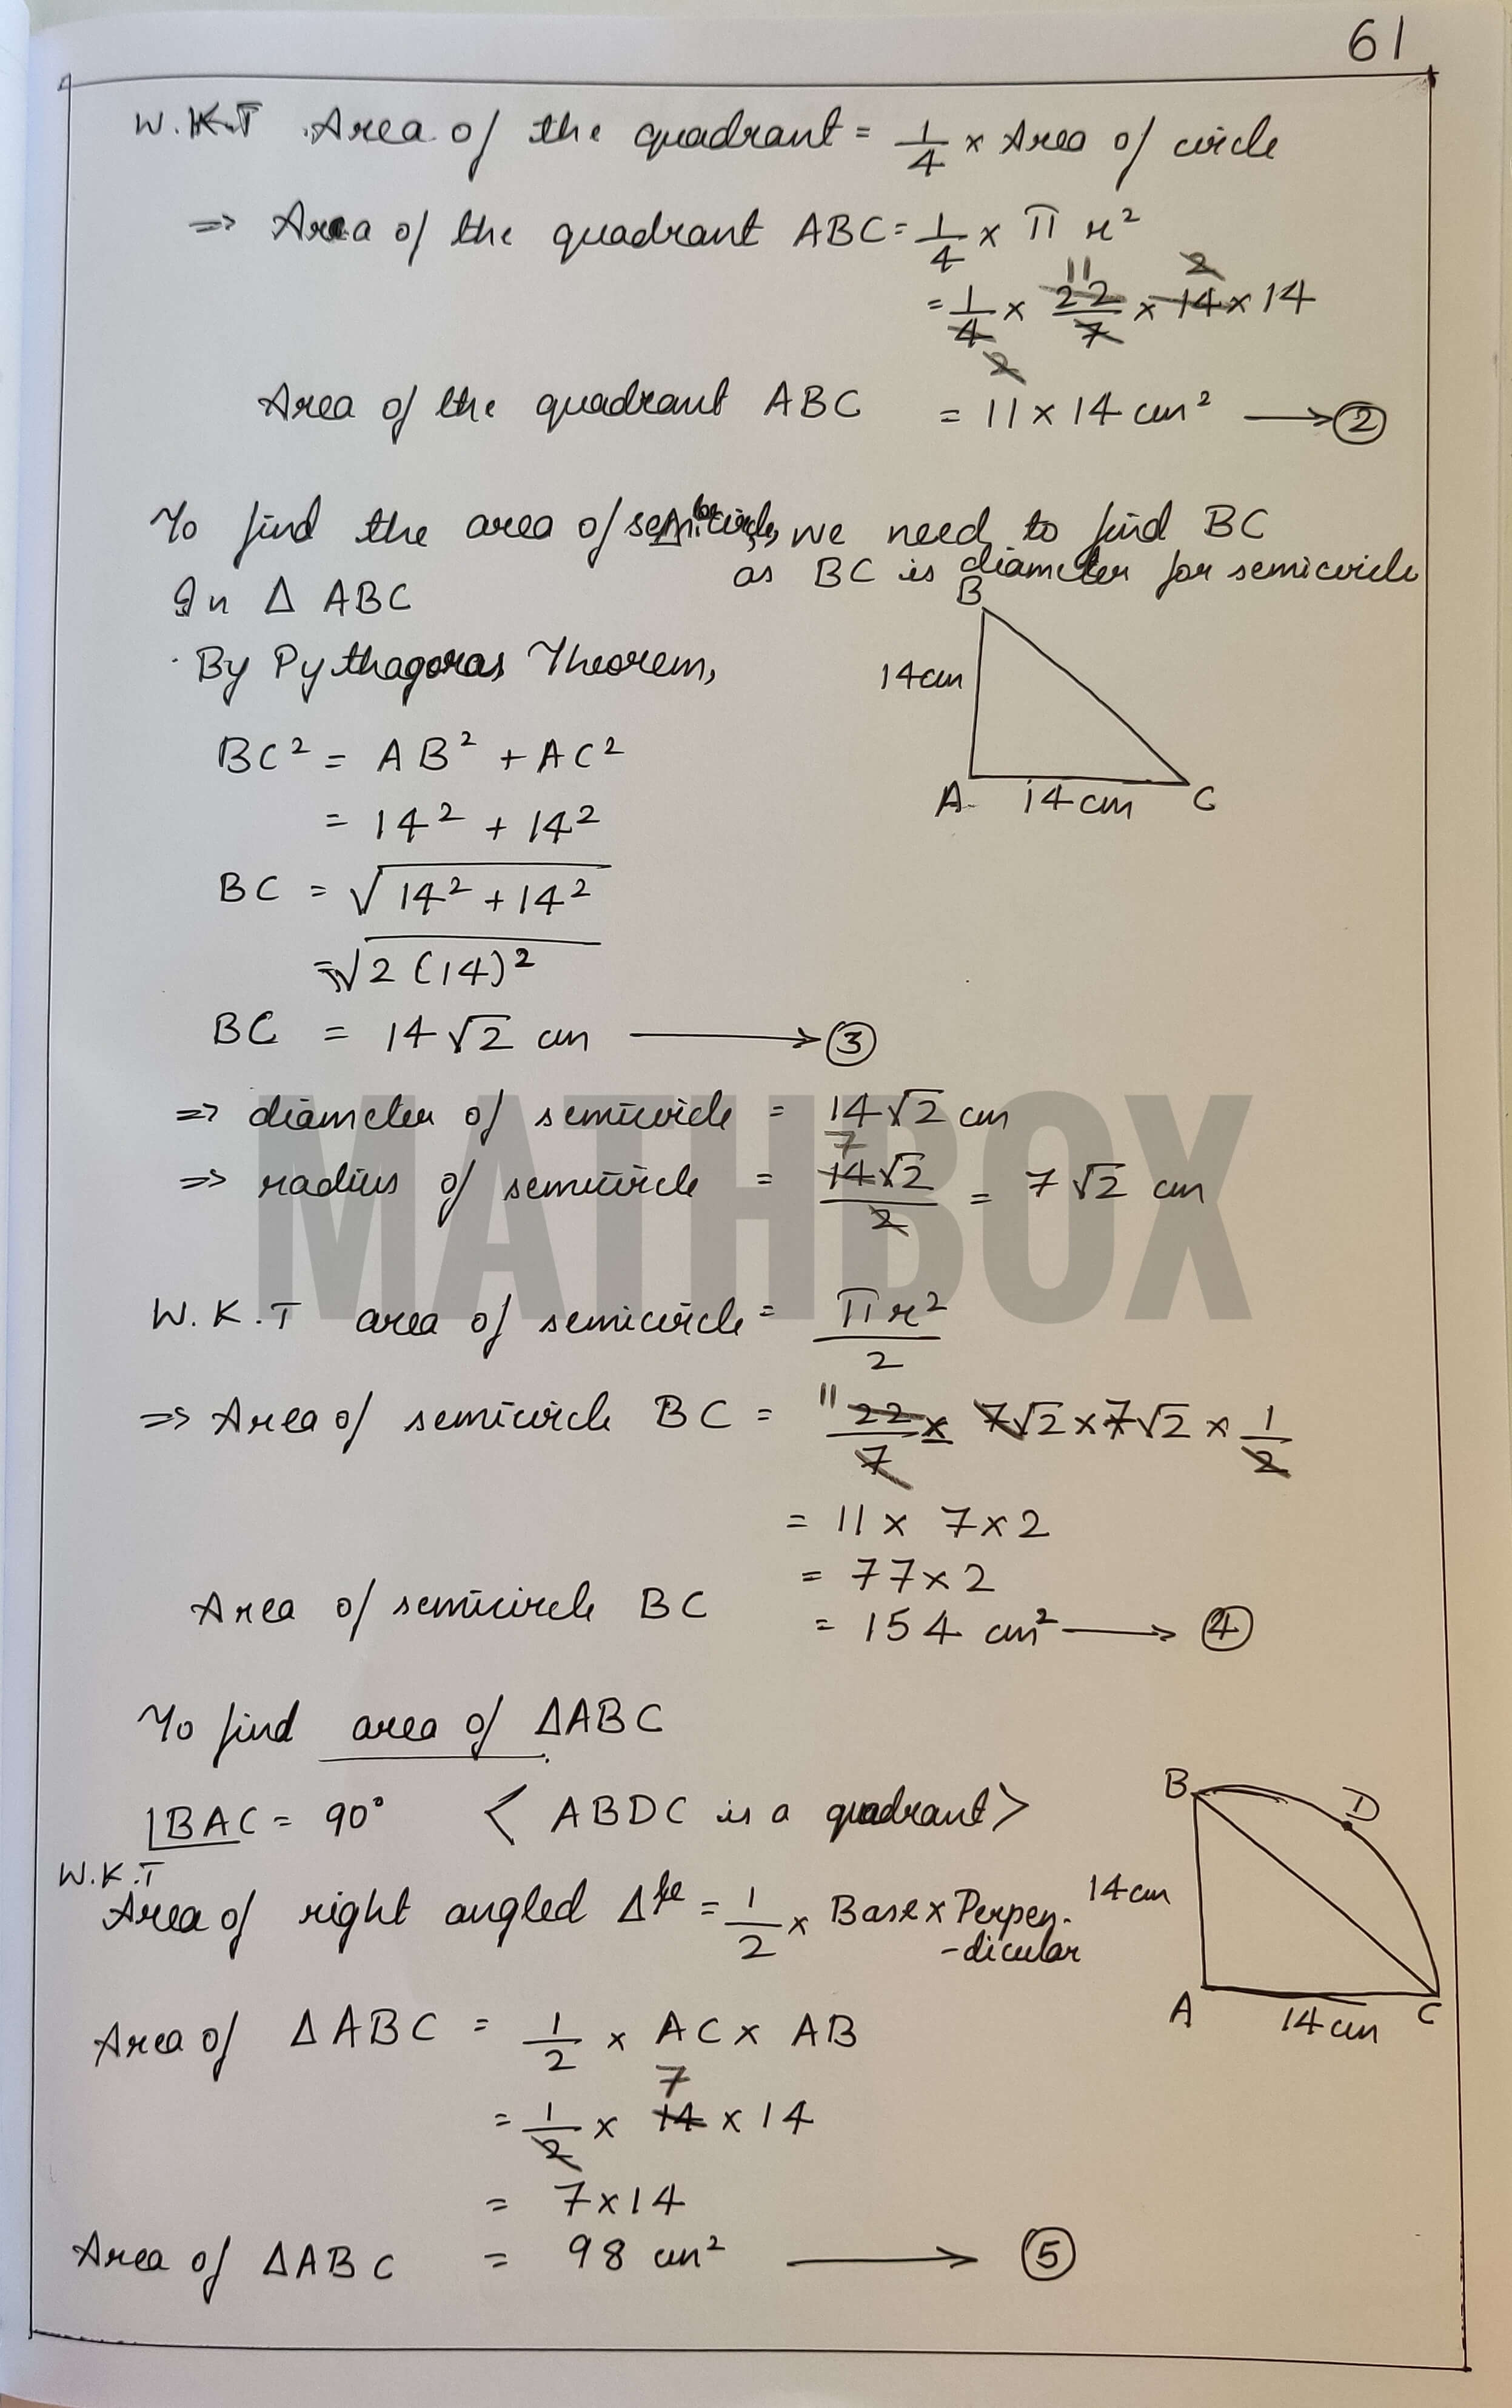 61
W.K.T Area of the quadrant = 1/4 × Area of circle
⇒ Area of the quadrant ABC = 1/4 × π r²
= 1/4 × 22/7 × 14 × 14
11 2
2
Area of the quadrant ABC = 11 × 14 cm² → ②
To find the area of semicircle, we need to find BC
as BC is diameter for semicircle
In Δ ABC
By Pythagoras Theorem,
B
14cm
A 14cm C
BC² = AB² + AC²
= 14² + 14²
BC = √14² + 14²
= √2 (14)²
BC = 14√2 cm → ③
⇒ diameter of semicircle = 14√2 cm
⇒ radius of semicircle = 14√2/2 = 7√2 cm
7
MATHBOX
W.K.T area of semicircle = πr²/2
⇒ Area of semicircle BC = 22/7 × 7√2 × 7√2 × 1/2
11
= 11 × 7 × 2
= 77 × 2
Area of semicircle BC = 154 cm² → ④
To find area of ΔABC
∠BAC = 90° < ABDC is a quadrant >
W.K.T
Area of right angled Δle = 1/2 × Base × Perpen-
-dicular
B D
14cm
A 14cm C
Area of ΔABC = 1/2 × AC × AB
= 1/2 × 14 × 14
7
= 7 × 14
Area of ΔABC = 98 cm² → ⑤